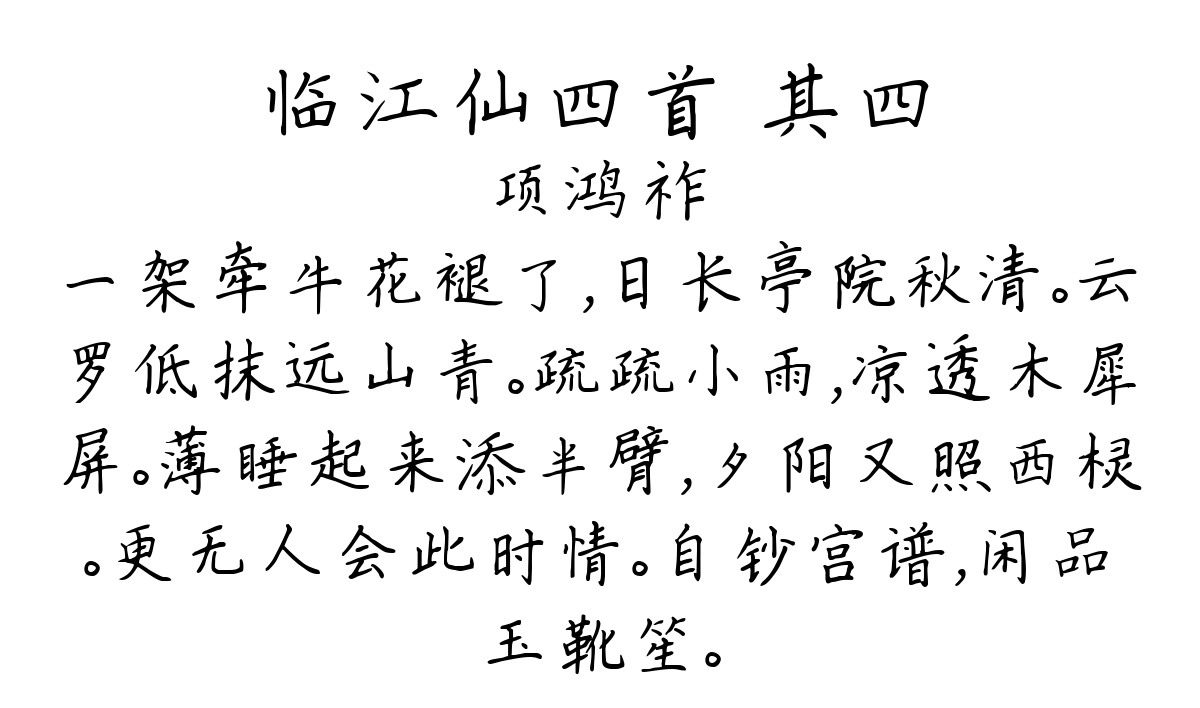 临江仙四首 其四
项鸿祚
一架牵牛花褪了,日长亭院秋清。云
罗低抹远山青。疏疏小雨,凉透木犀
屏。薄睡起来添半臂,夕阳又照西棂
。更无人会此时情。自钞宫谱,闲品
玉靴笙。